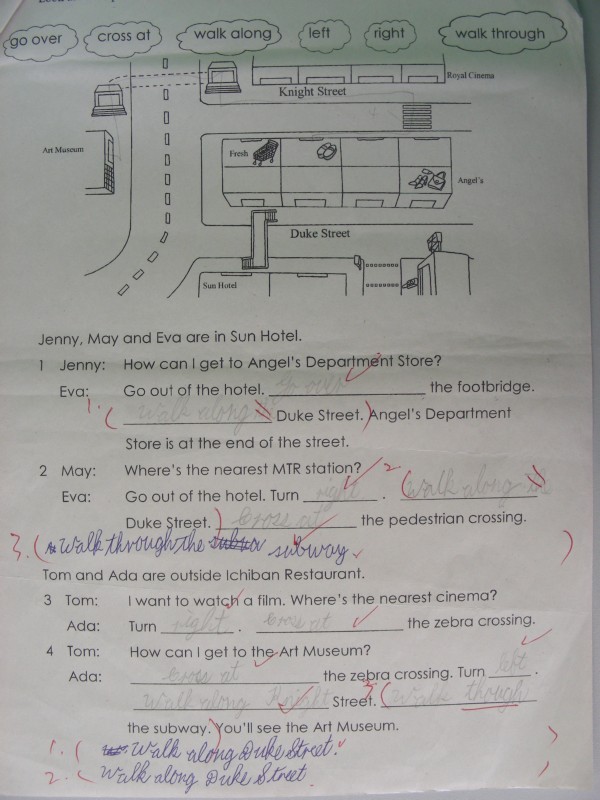 go over cross at walk along left right walk through
Royal Cinema
Knight Street
Art Museum
Fresh
Angel's
Duke Street
Sun Hotel
Jenny, May and Eva are in Sun Hotel.
1 Jenny: How can I get to Angel's Department Store?
Eva: Go out of the hotel. Go over the footbridge.
1. ( walk along Duke Street. ) Angel's Department
Store is at the end of the street.
2 May: Where's the nearest MTR station? 2
Eva: Go out of the hotel. Turn right . ( walk along
Duke Street. ) Cross at the pedestrian crossing.
3. ( Walk through the subway. )
Tom and Ada are outside Ichiban Restaurant.
3 Tom: I want to watch a film. Where's the nearest cinema?
Ada: Turn right . Cross at the zebra crossing.
4 Tom: How can I get to the Art Museum?
Ada: Cross at the zebra crossing. Turn left .
Walk along Knight Street. 3 ( Walk though
the subway. ) You'll see the Art Museum.
1. ( Walk along Duke Street. )
2. ( Walk along Duke Street. )